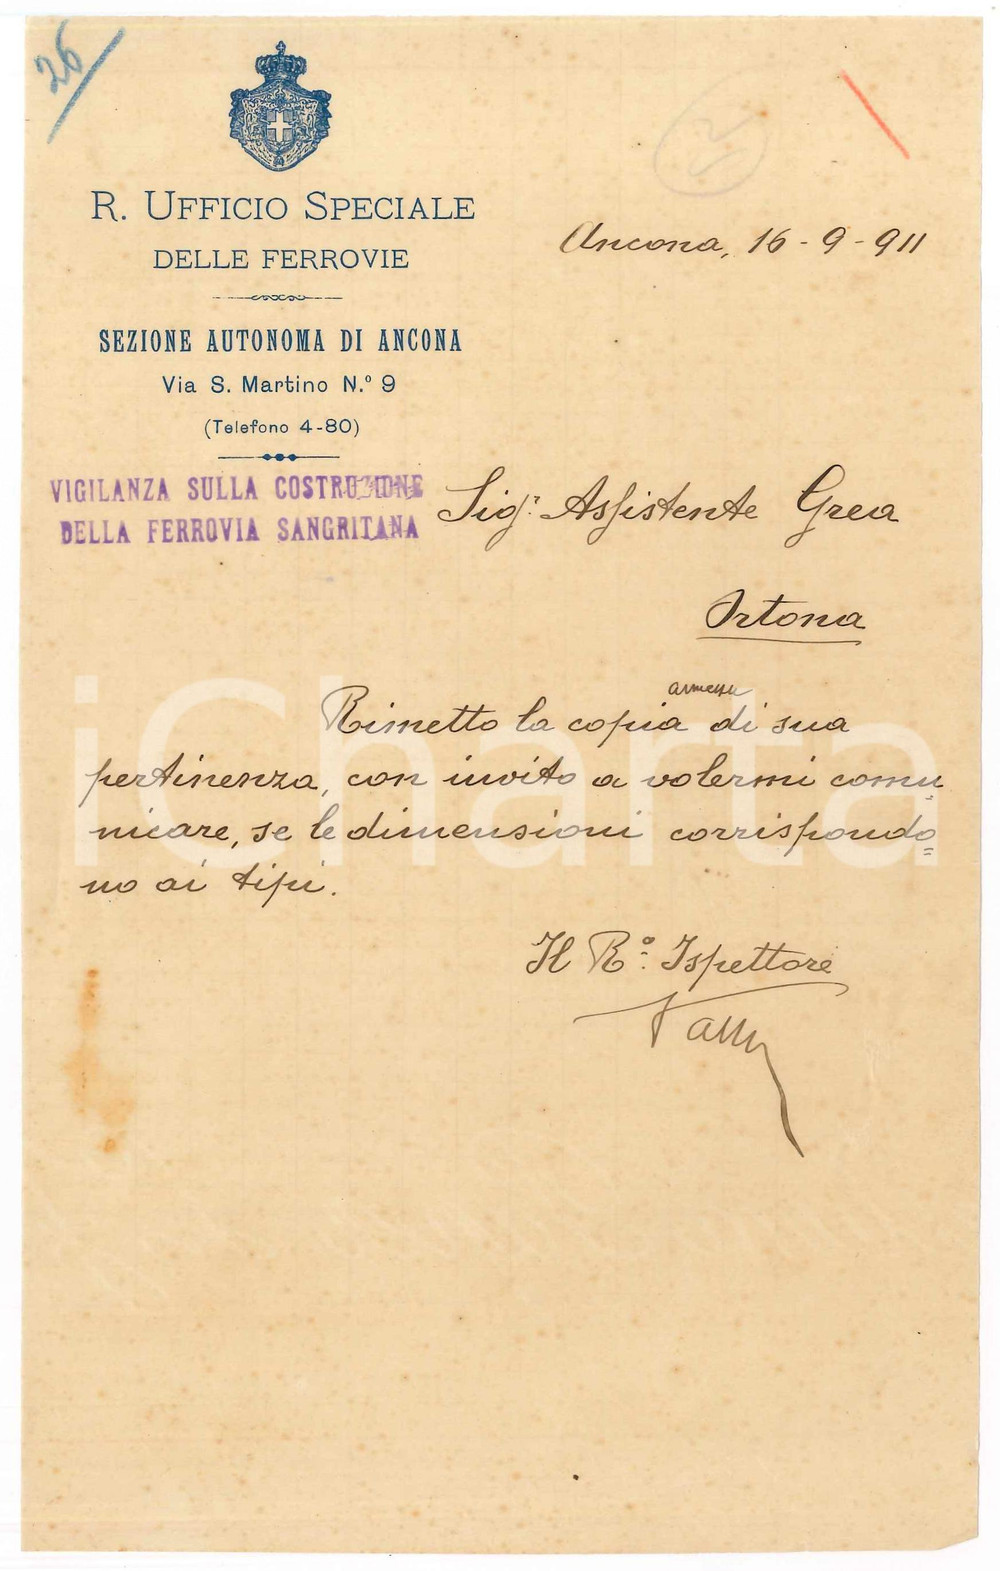 26
R. UFFICIO SPECIALE
DELLE FERROVIE
SEZIONE AUTONOMA DI ANCONA
Via S. Martino N.º 9
(Telefono 4-80)
VIGILANZA SULLA COSTRUZIONE
DELLA FERROVIA SANGRITANA
Ancona, 16-9-911
Sigr. Assistente Grea
Ortona
annessa
Rimetto la copia di sua
pertinenza, con invito a volermi comu-
nicare, se le dimensioni corrispondo=
no ai tipi.
Il Rº. Ispettore
iCharta